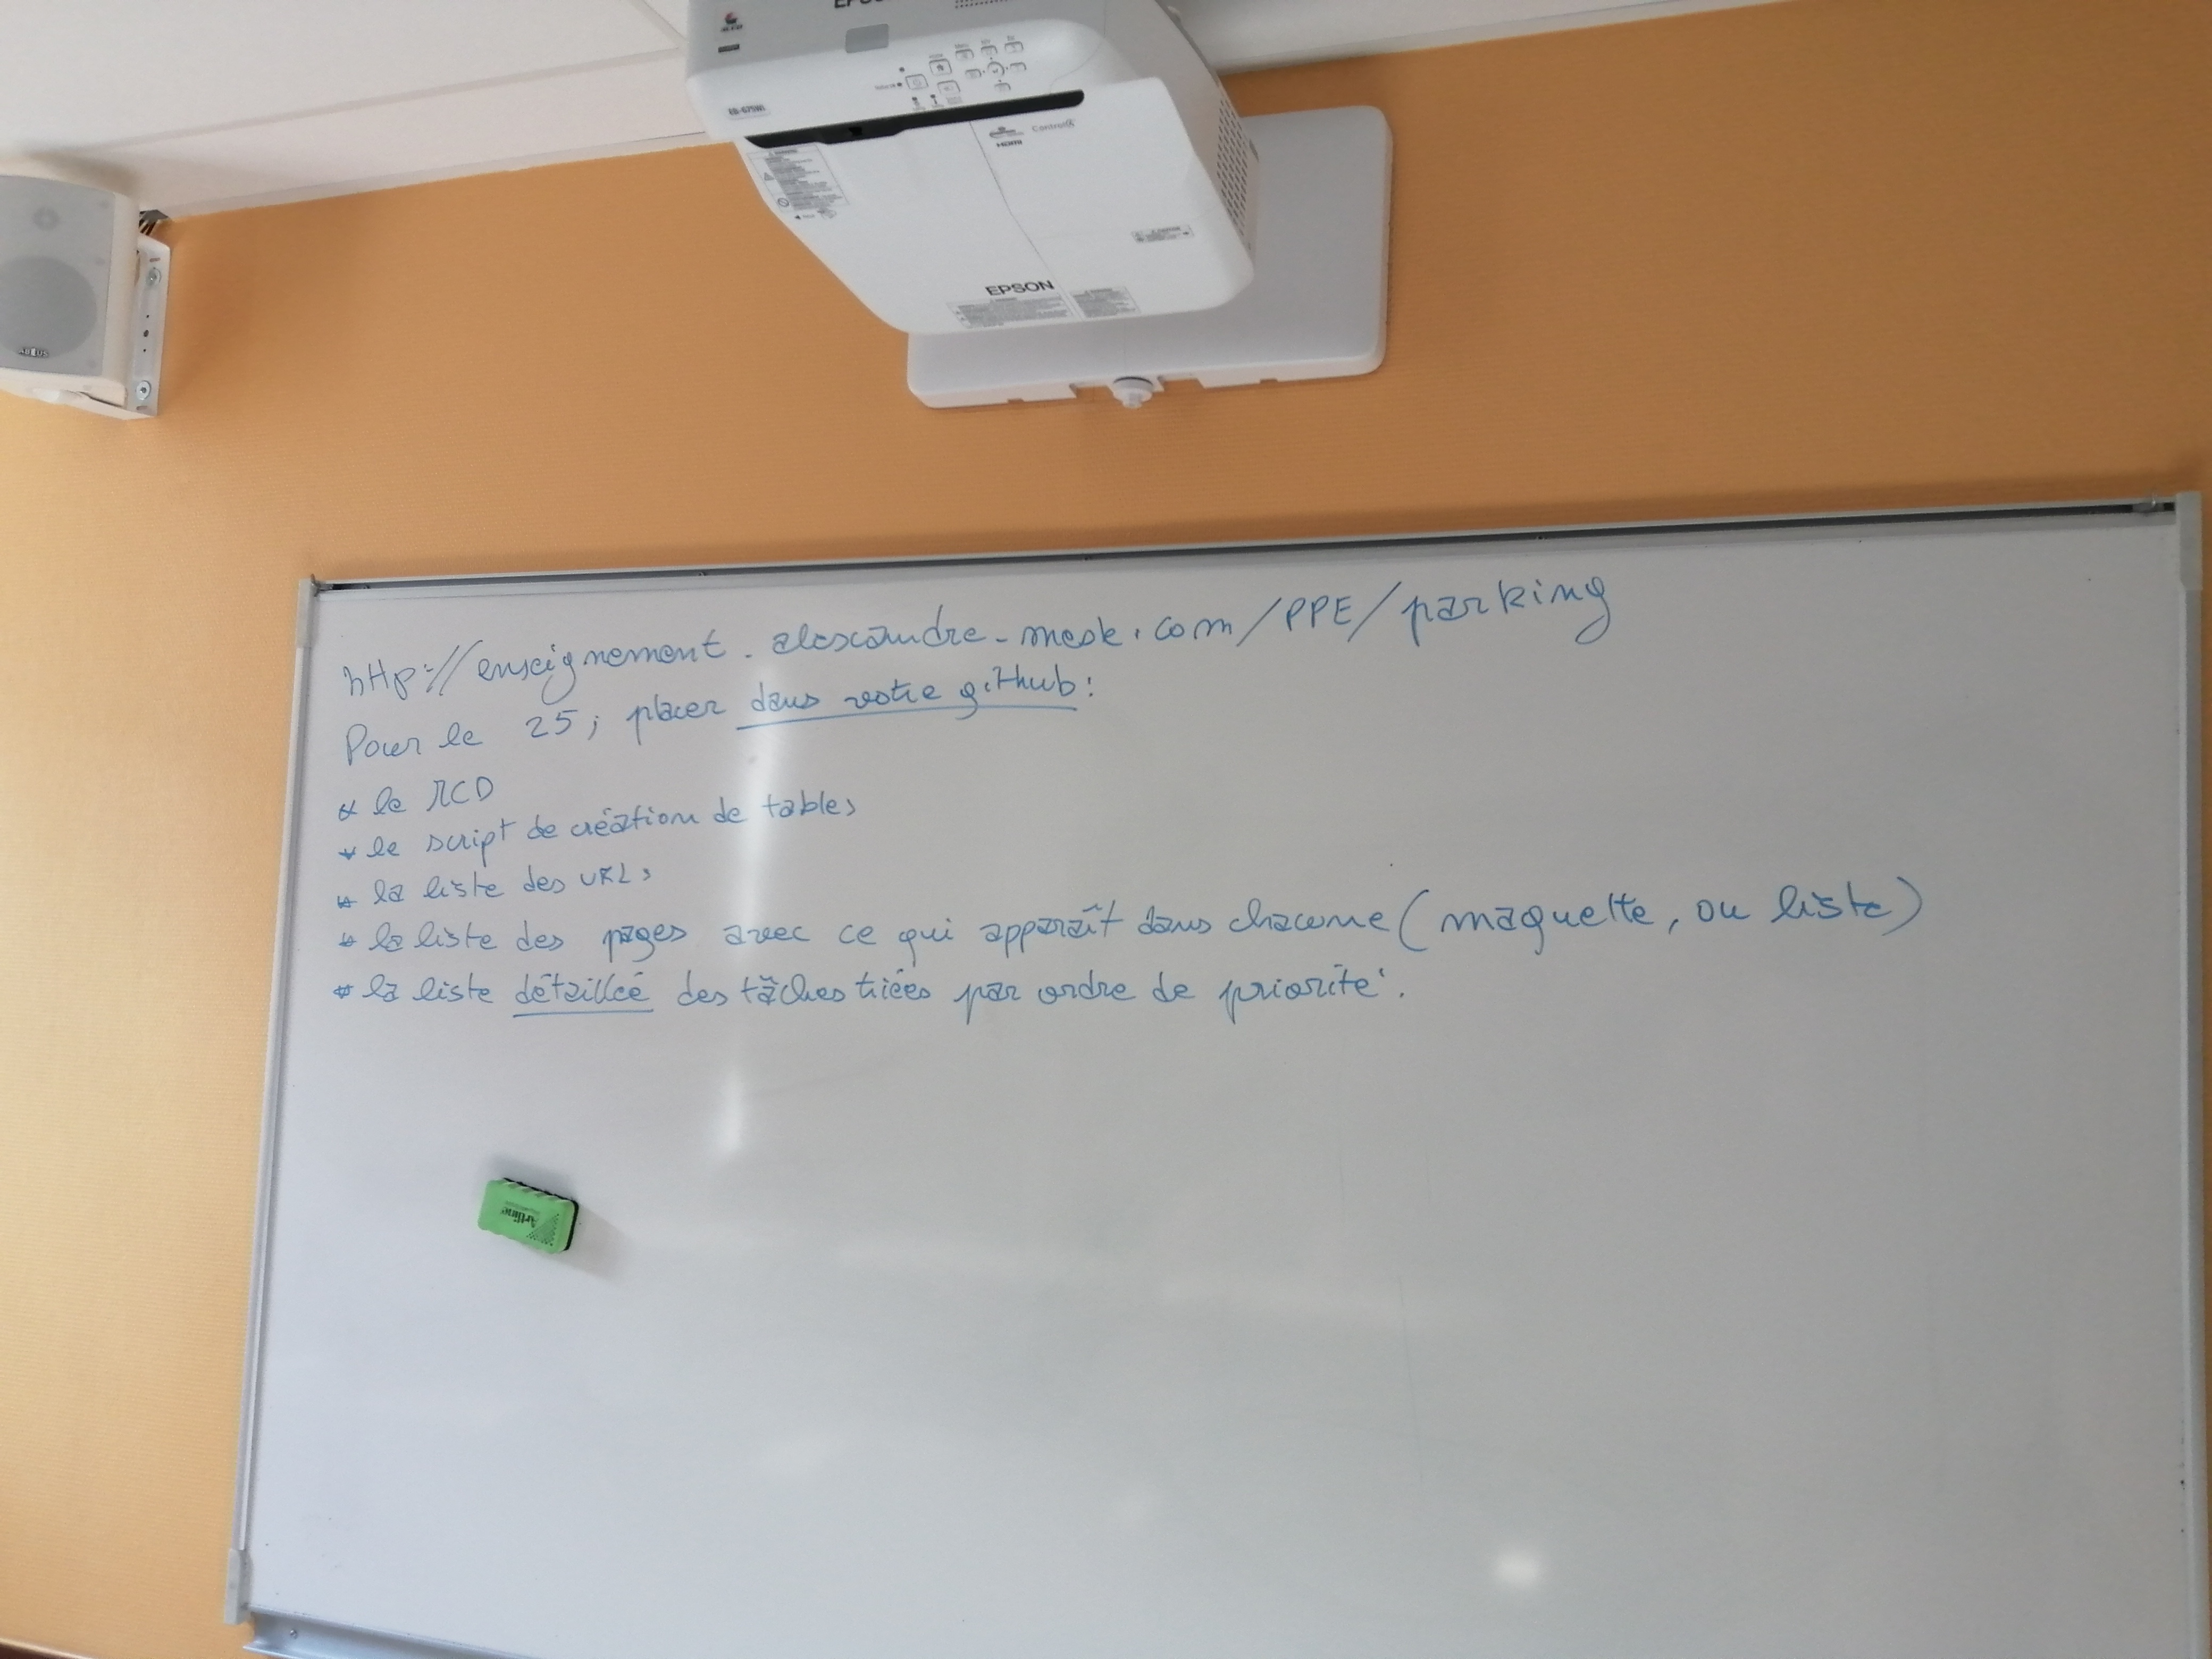 EPSON
EB-675Wi
HDMI
EPSON
http://enseignement.alexandre-mesle.com/PPE/parking
Pour le 25; placer dans votre github:
* le MCD
* le script de création de tables
* la liste des URLs
* la liste des pages avec ce qui apparaît dans chacune (maquette, ou liste)
* la liste détaillée des tâches triées par ordre de priorité.
Artline